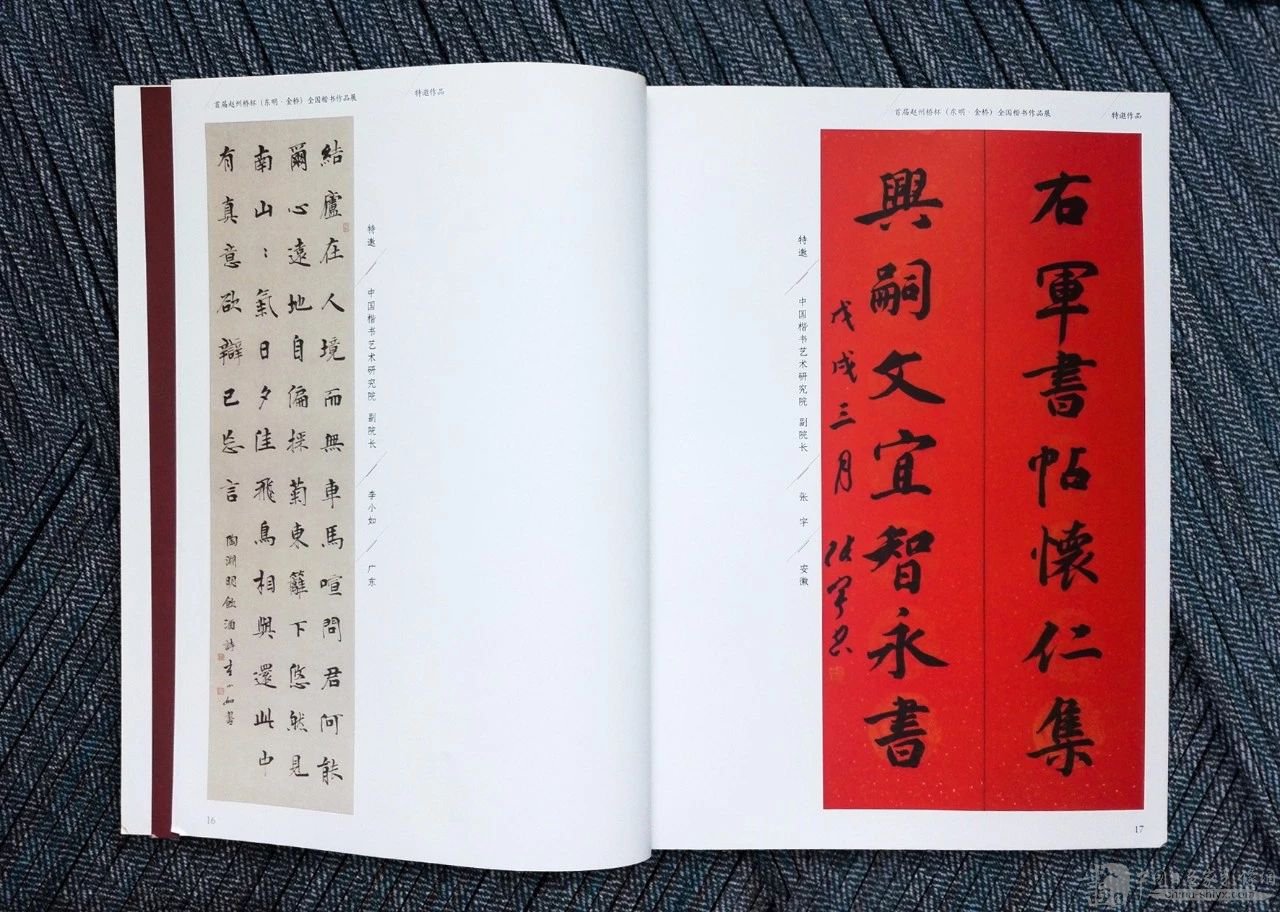 首届赵州桥杯（东明·金桥）全国楷书作品展
特邀作品
結廬在人境而無車馬喧問君何能
爾心遠地自偏採菊東籬下悠然見
南山：氣日夕佳飛鳥相與還此中
有真意欲辯已忘言
陶淵明飲酒詩 李小如書
特邀
中国楷书艺术研究院 副院长
李小如
广东
16
首届赵州桥杯（东明·金桥）全国楷书作品展
特邀作品
右軍書帖懷仁集
興嗣文宜智永書
戊戌三月 張宇書
特邀
中国楷书艺术研究院 副院长
张宇
安徽
17